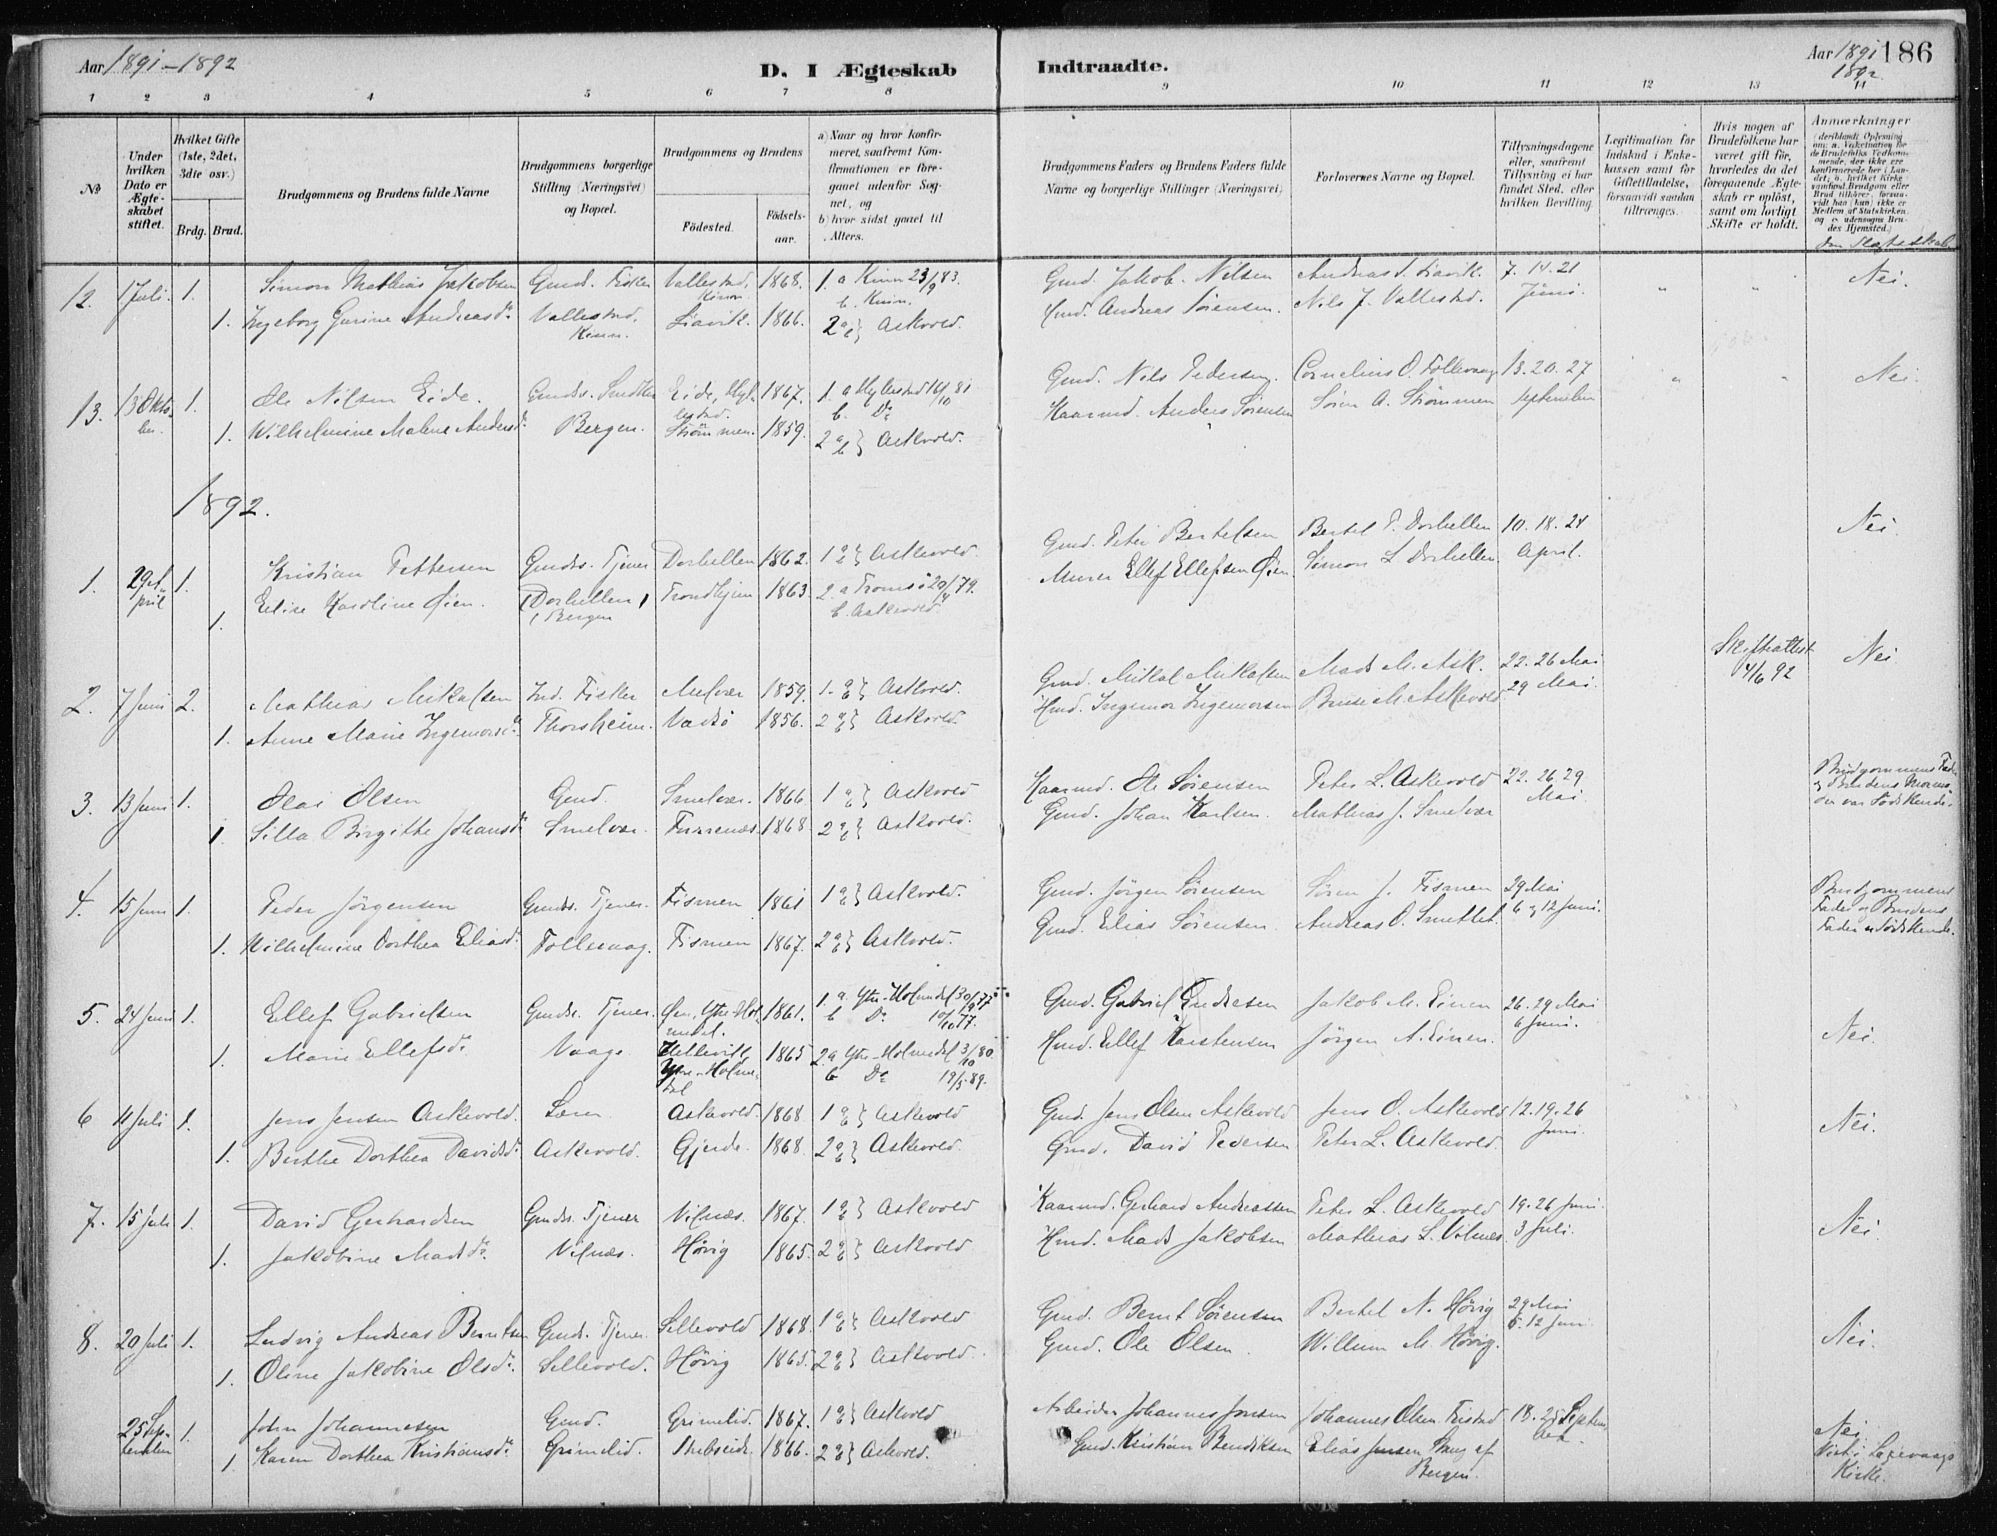 Aar 1891-1892
D. I Ægteskab Indtraadte.
Aar 1891 1892
186
1 2 3 4 5 6 7 8 9 10 11 12 13 14
No
Under hvilken Dato er Ægteskabet stiftet.
Hvilket Gifte (1ste, 2det, 3die osv.)
Brdg. Brud.
Brudgommens og Brudens fulde Navne
Brudgommens borgerlige Stilling (Næringsvei) og Bopæl.
Brudgommens og Brudens
Fødested. Fødselsaar.
a) Naar og hvor konfirmeret, saafremt Konfirmationen er foregaaet udenfor Sognet, og
b) hvor sidst gaaet til Alters.
Brudgommens Faders og Brudens Faders fulde Navne og borgerlige Stillinger (Næringsvei)
Forlovernes Navne og Bopæl.
Tillysningsdagene eller, saafremt Tillysning ei har fundet Sted, efter hvilken Bevilling.
Legitimation for Indskud i Enkekassen samt for Giftetilladelse, forsaavidt saadan tiltrænges.
Hvis nogen af Brudefolkene har været gift før, hvorledes da det foregaaende Ægteskab er opløst, samt om lovligt Skifte er holdt.
Anmærkninger
12. 1 Juli. 1. Simon Mathias Jakobsen Gmds. Fisker Vallestad, Kinn. 1868. 1. a Kinn 23/9 83. b. Kinn. Gmd. Jakob Nilsen Andreas S. Liavik. 7. 14. 21 Juni. " " Nei.
1. Ingeborg Gurine Andreasdr. Vallestad, Kinn. Liavik. 1866. 2 a b } Askvold. Hmd. Andreas Sørensen. Nils J. Vallestad.
13. 13 Oktober. 1. Ole Nilsen Eide. Gmds. Eide, Hyllestad. 1867. 1. a Hyllestad 16/10 81 b. Do Gmd. Nils Pedersen. Cornelius O. Follevaag 13. 20. 27 september " " Nei.
1. Wilhelmine Malene Andersdr. Bergen. Strømmen. 1859. 2 a b } Askvold. Kaarmd. Anders Sørensen Søren A. Strømmen
1892.
1. 29 April 1. Kristian Pettersen Gmds. Tjener Dorhellen 1862. 1 a b } Askvold. Gmd. Peter Bertelsen Bertel P. Dorhellen 10. 18. 24 April. Nei
1. Elise Karoline Øien. (Dorhellen) Bergen Trondhjem 1863. 2. a Tromsø 20/4 79. b. Askevold. Murer Ellef Ellefsen Øien. Simon L Dorhellen
2. 7 Juni 2. Mathias Mikalsen Ind. Fisker Melvær 1859. 1. a b } Askvold. Gmd. Mikkal Mikalsen Mads M. Ask. 22. 26 Mai 29 Mai. Skifteattest 4/6 92 Nei
1. Anne Marie Ingemorsdr. Thorsheim. Vadsø 1856. 2 a b } Askvold. Hmd. Ingemor Ingemorsen M. Askevold
3. 13 Juni 1. Olai Olsen Gmd. Smelvær. 1866 1 a b } Askevold Kaarmd. Ole Sørensen Peter L. Askevold 22. 26. 29 Mai Brudgommens Fader og Brudens Mormoder var Sødskende.
1 Silla Birgitte Johansdr. Smelvær. Furenæs 1868 2 a b } Askvold. Gmd. Johan Karlsen. Mathias J. Smelvær
4. 15 Juni 1. Peder Jörgensen Gmds. Tjener. Fismen 1861 1 a b } Askvold. Gmd. Jörgen Sørensen Søren J. Fismen 29 Mai 6 og 12 Juni. Brudgommens Fader og Brudens Fader er Sødskende.
1. Wilhelmine Dorthea Eliasdr. Follevaag. Fismen 1867. 2 a b } Askvold. Gmd. Elias Sørensen. Andreas O. Smettet.
5. 24 Juni 1. Ellef Gabrielsen Gmds. Tjener. Øen, Ytre-Holmedal. 1861. 1. a. Ytre-Holmedal 30/9 77 b Do 10/10 77. Gmd. Gabriel Endresen Jakob M. 26. 29 Mai 6 Juni. Nei.
1. Marie Ellefsdr. Vaage Hellevik, Ytre-Holmedal 1865 2 a Ytre-Holmedal 3/10 80 b Do 19/5 89. Hmd. Ellef Karstensen Jørgen A.
6 11 Juli 1. Jens Jensen Askevold. Lærer Askevold. 1868 1 a b } Askevold Gmd. Jens Olsen Askevold Jens O. Askevold 12. 19. 26 Juni. Nei.
1. Berthe Dorthea Davidsdr. Askevold. Gjerde. 1868. 2 a b } Askevold. Gmd. David Pedersen Peter L. Askevold.
7. 15 Juli 1. David Gerhardsen Gmds. Tjener Vilnæs. 1867. 1 a b } Askvold Kaarmd. Gerhard Andreassen Peter L. Askevold 19. 26 Juni 3 Juli. Nei.
1. Jakobine Madsdr. Vilnæs. Hövig 1865. 2 a b } Askvold Hmd. Mads Jakobsen Mathias L. Vilnæs.
8. 20 Juli 1. Ludvig Andreas Berntsen Gmds. Tjener. Sellevold 1868. 1 a b } Askvold Gmd. Bernt Sörensen Bertel N. Hövig 29 Mai 5. 12 Juni. Nei.
1. Oline Jakobine Olsdr. Sellevold. Hövig 1865. 2 a b } Askvold. Gmd. Ole Olsen. Willum M. Hövig.
25 September 1. John Johannesen Gmd. Grimelid. 1867. 1 a b } Askvold Arbeider Johannes Jonsen Johannes Olsen 18. 25 September Nei.
1 Karen Dorthea Kristiansdr. Grimelid. 1866. 2 a b } Askvold. Gmd. Kristian Bendiksen Elias Jensen af Bergen. Viet i Laxevaags Kirke.